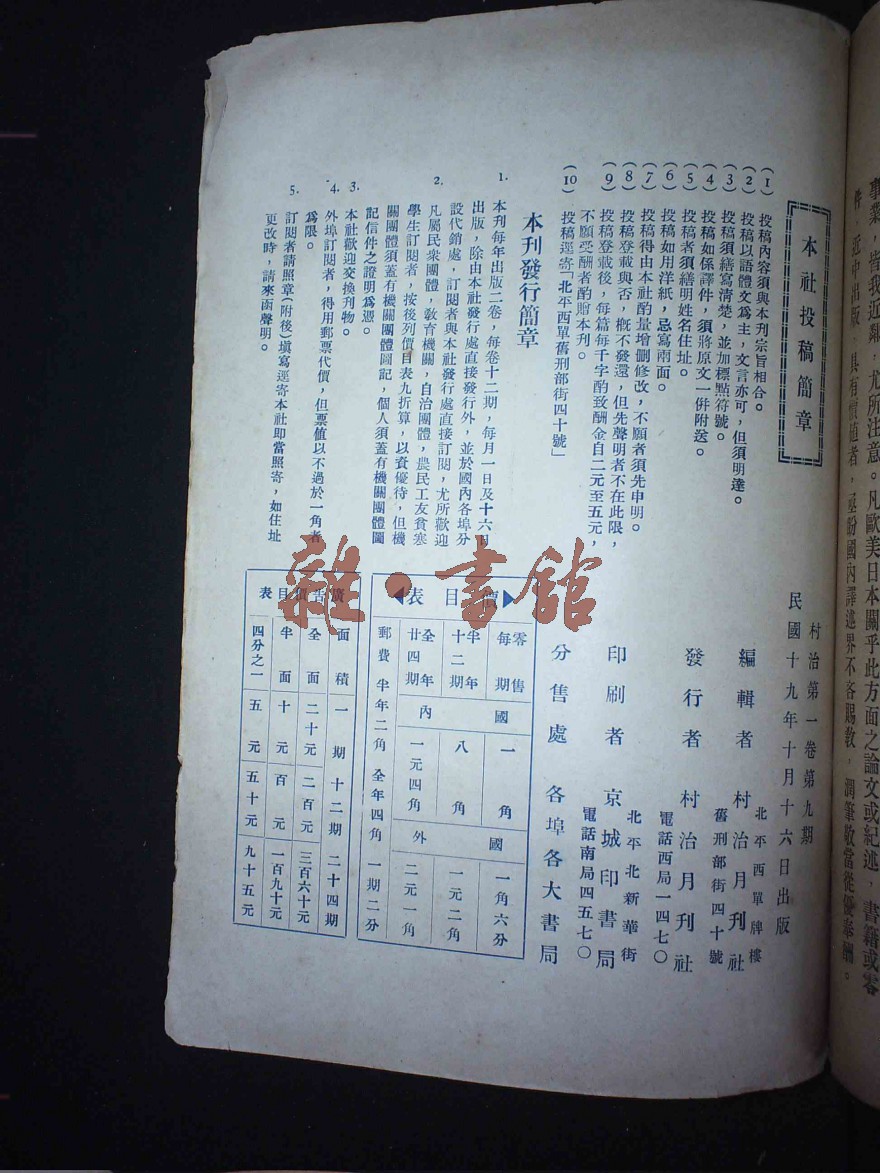 事業，皆我近鄰，尤所注意。凡歐美日本關乎此方面之論文或紀述，書籍或零
件，近中出版，具有價值者，亟盼國內譯述界不吝賜教，潤筆敬當從優奉酬。
本社投稿簡章
(1) 投稿內容須與本刊宗旨相合。
(2) 投稿以語體文為主，文言亦可，但須明達。
(3) 投稿須繕寫清楚，並加標點符號。
(4) 投稿如係譯件，須將原文一併附送。
(5) 投稿者須繕明姓名住址。
(6) 投稿如用洋紙，忌寫兩面。
(7) 投稿得由本社酌量增刪修改，不願者須先申明。
(8) 投稿登載與否，概不發還，但先聲明者不在此限，
(9) 投稿登載後，每篇每千字酌致酬金自二元至五元，
不願受酬者酌贈本刊。
(10) 投稿逕寄「北平西單舊刑部街四十號」
本刊發行簡章
1. 本刊每年出版二卷，每卷十二期，每月一日及十六日
出版，除由本社發行處直接發行外，並於國內各埠分
設代銷處，訂閱者與本社發行處直接訂閱，尤所歡迎
2. 凡屬民衆團體，教育機關，自治團體，農民工友貧寒
學生訂閱者，按後列價目表九折算，以資優待，但機
關團體須蓋有機關團體圖記，個人須蓋有機關團體圖
記信件之證明為憑。
3. 本社歡迎交換刊物。
4. 外埠訂閱者，得用郵票代價，但票值以不過於一角者
為限。
5. 訂閱者請照章(附後)填寫逕寄本社即當照寄，如住址
更改時，請來函聲明。
村治第一卷第九期
民國十九年十月十六日出版
編輯者 村治月刊社
北平西單牌樓
舊刑部街四十號
發行者 村治月刊社
電話西局一四七〇
印刷者 京城印書局
北平北新華街
電話南局四五七〇
分售處 各埠各大書局
價目表
零售每期 國內 一角 國外 一角六分
半年十二期 八角 一元二角
全年廿四期 一元四角 二元一角
郵費 半年二角 全年四角 一期二分
廣告價目表
面積 一期 十二期 二十四期
全面 二十元 二百元 三百六十元
半面 十元 百元 一百九十元
四分之一 五元 五十元 九十五元
雜·書館